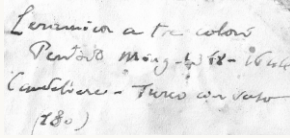 Ceramica a tre colori
Periodo Ming - 1368 - 1644
Candeliere - Fuoco con vaso
(180)